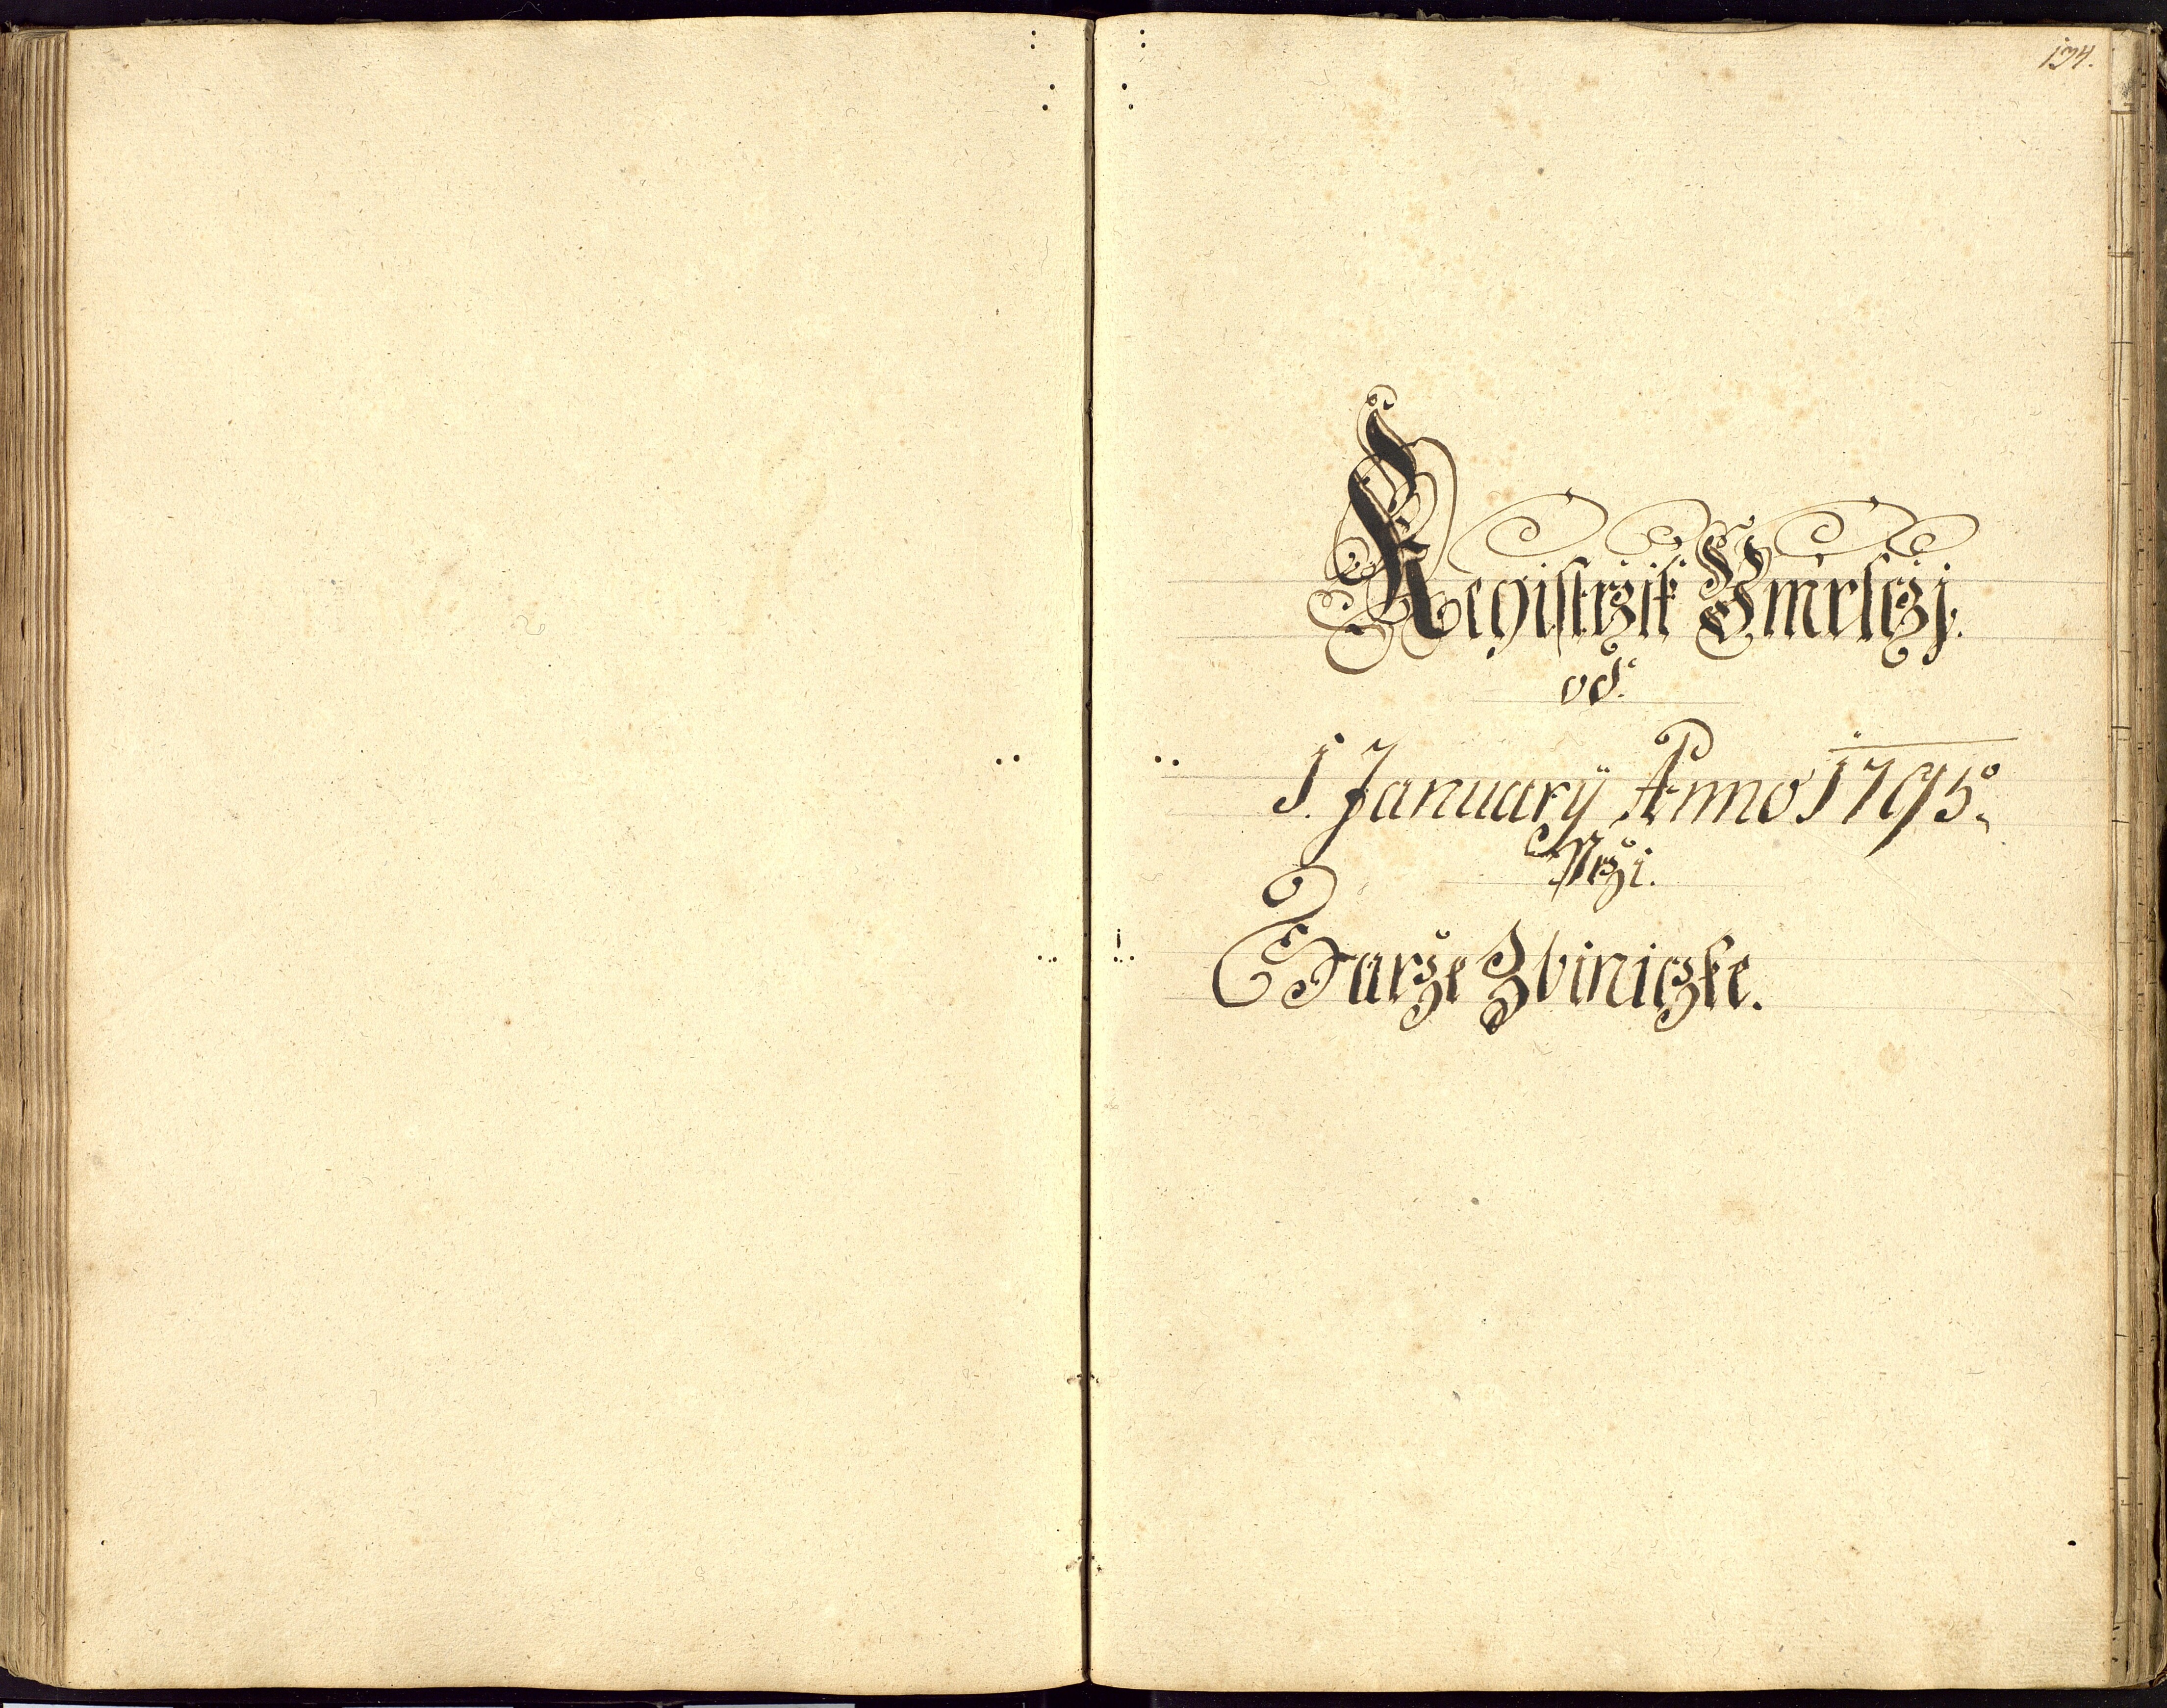 134.
Registrzik Umrlczj.
od.
1. January Anno 1795.
Przi.
Farže Zbiniczke.